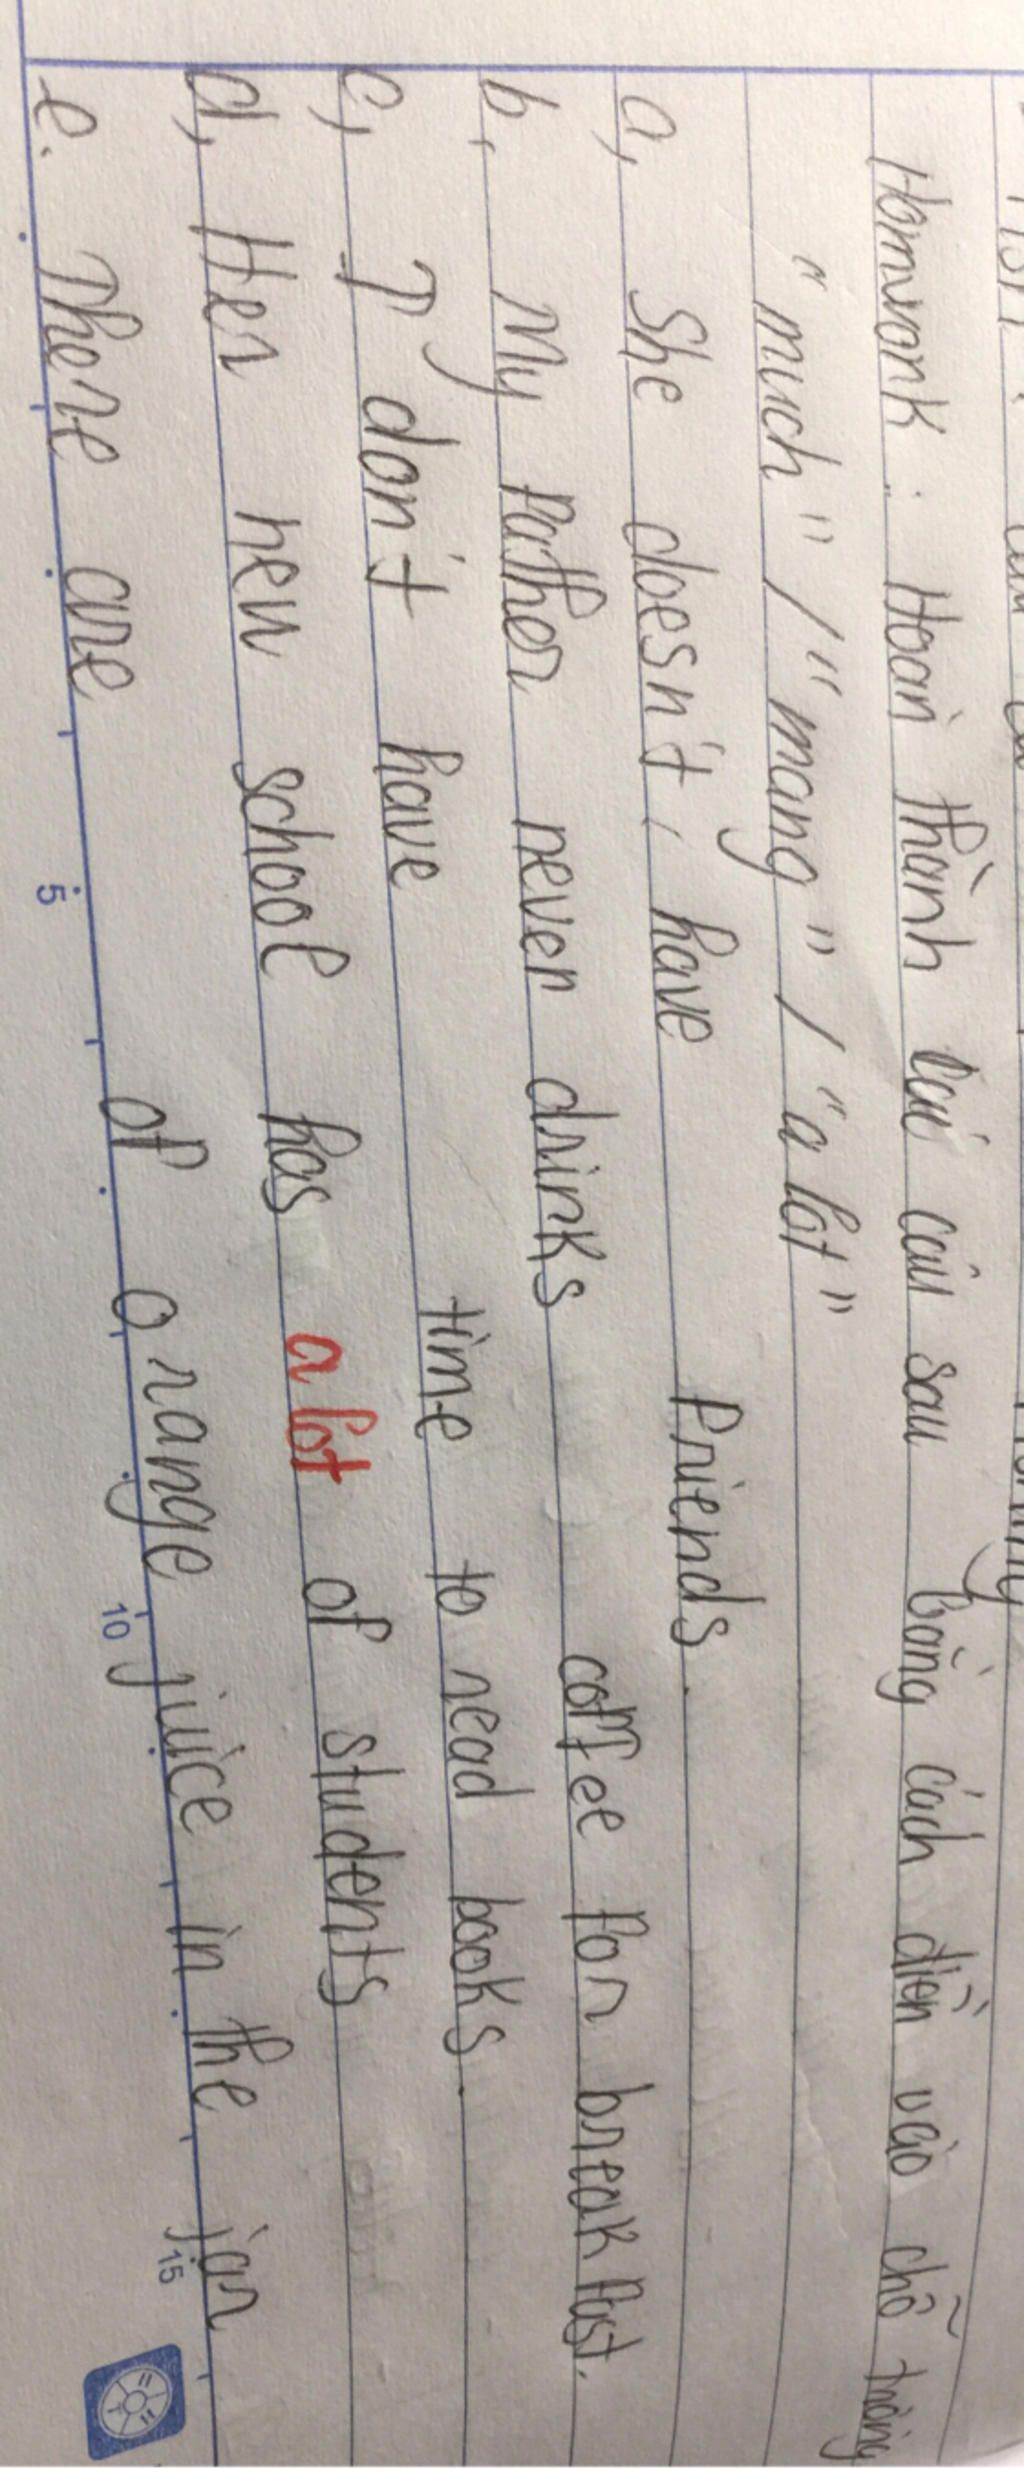 Homwork : Hoàn thành lại câu sau bằng cách điền vào chỗ trống
"much" / "mang" / "a lot"
a, She doesn't have friends.
b, My father never drinks coffee for breakfast.
c, I don't have time to read books.
d, Her her school has a lot of students
e. There are of orange juice in the jar
5 10 15